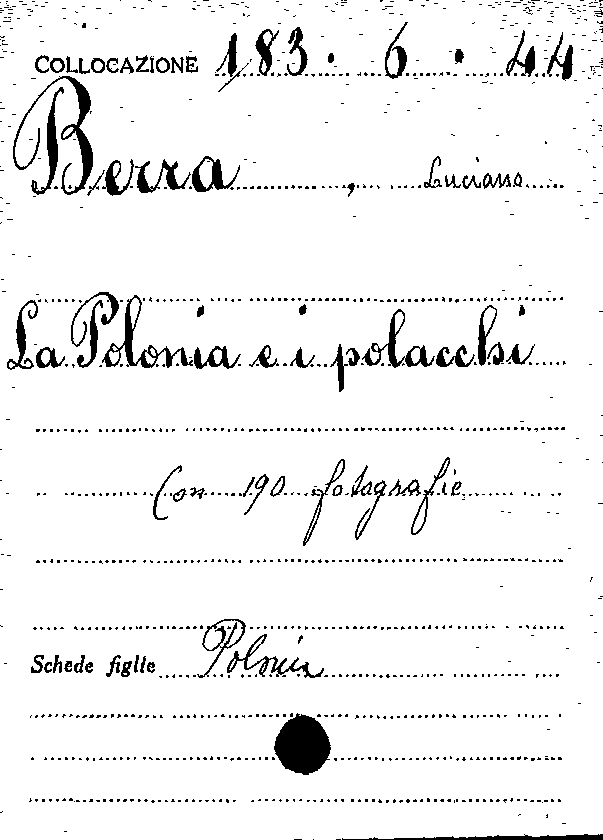 COLLOCAZIONE 183. 6. 44
Berra, Luciano
La Polonia e i polacchi
Con 190 fotografie
Schede figlie Polonia